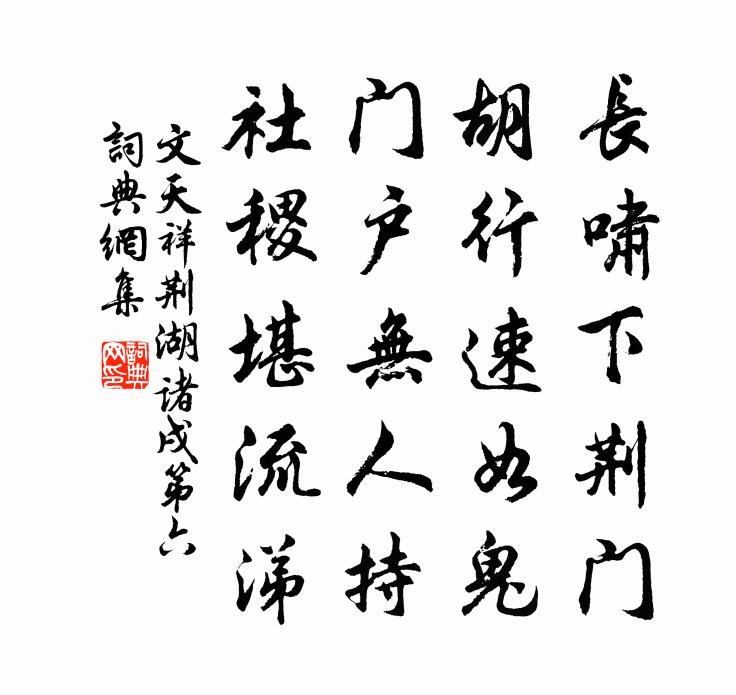 長嘯下荆门
胡行速如鬼
门户無人持
社稷堪流涕
文天祥荆湖诸戍第六
詞典網集
詞典网印